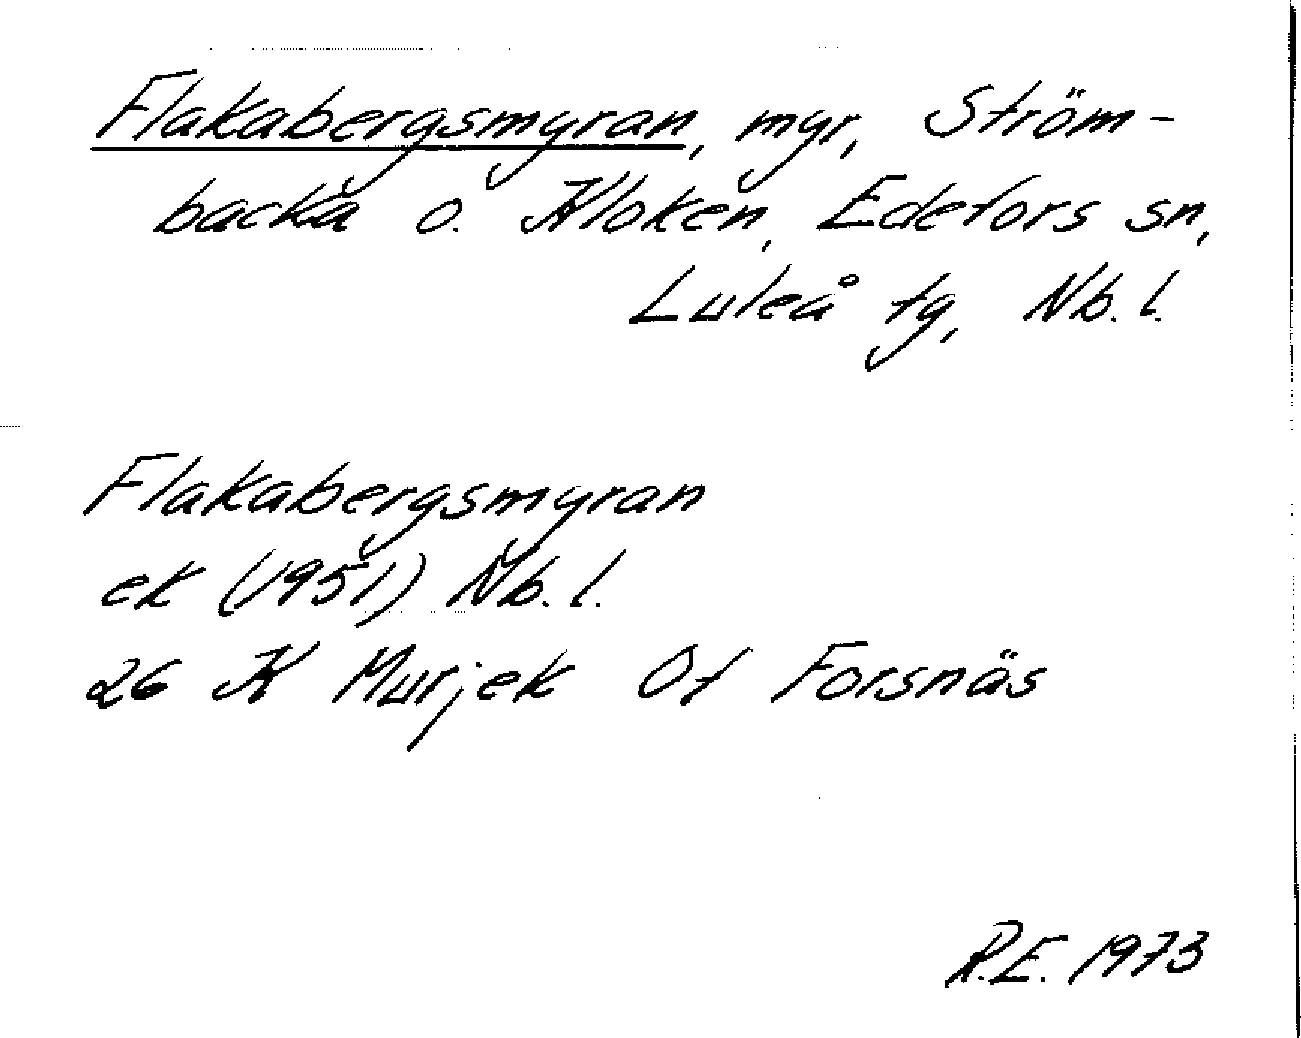 Flakabergsmyran, myr, Ström-
backa o. Kloken, Edefors sn,
Luleå tg, Nb. l.
Flakabergsmyran
ek (1951) Nb. l.
26 K Murjek Ot Forsnäs
R.E. 1973